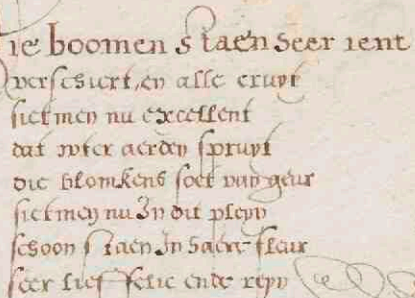 ie boomen staen seer ient
verschiert, en alle cruyt
sietmen nu excellent
dat wter aerden spruyt
die blomkens soet van geur
sietmen nu In dit pleyn
schoon staen In haere fleur
seer lieffelic ende reyn